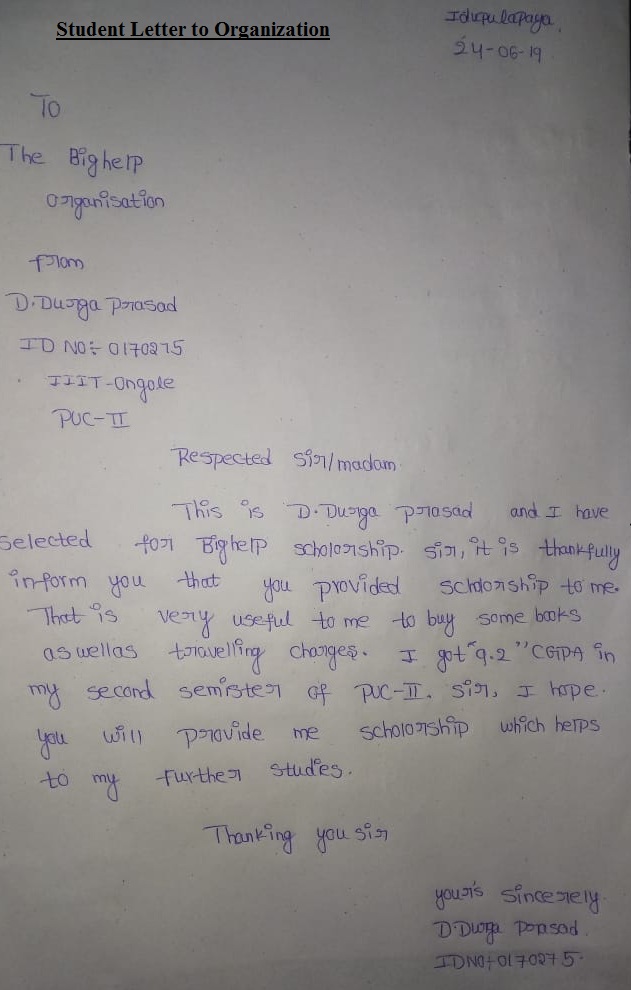 Student Letter to Organization
Idupulapaya,
24-06-19
To
The Bighelp
organisation
from
D.Durga Prasad
ID NO:- 0170275
IIIT-Ongole
PUC-II
Respected sir/madam
This is D.Durga prasad and I have
selected for Bighelp scholorship. sir, it is thankfully
inform you that you provided scholorship to me.
That is very useful to me to buy some books
as wellas travelling charges. I got "9.2" CGPA in
my second semister of PUC-II. sir, I hope.
you will provide me scholorship which helps
to my further studies.
Thanking you sir
your's sincerely.
D.Durga Prasad.
IDNO:- 0170275.